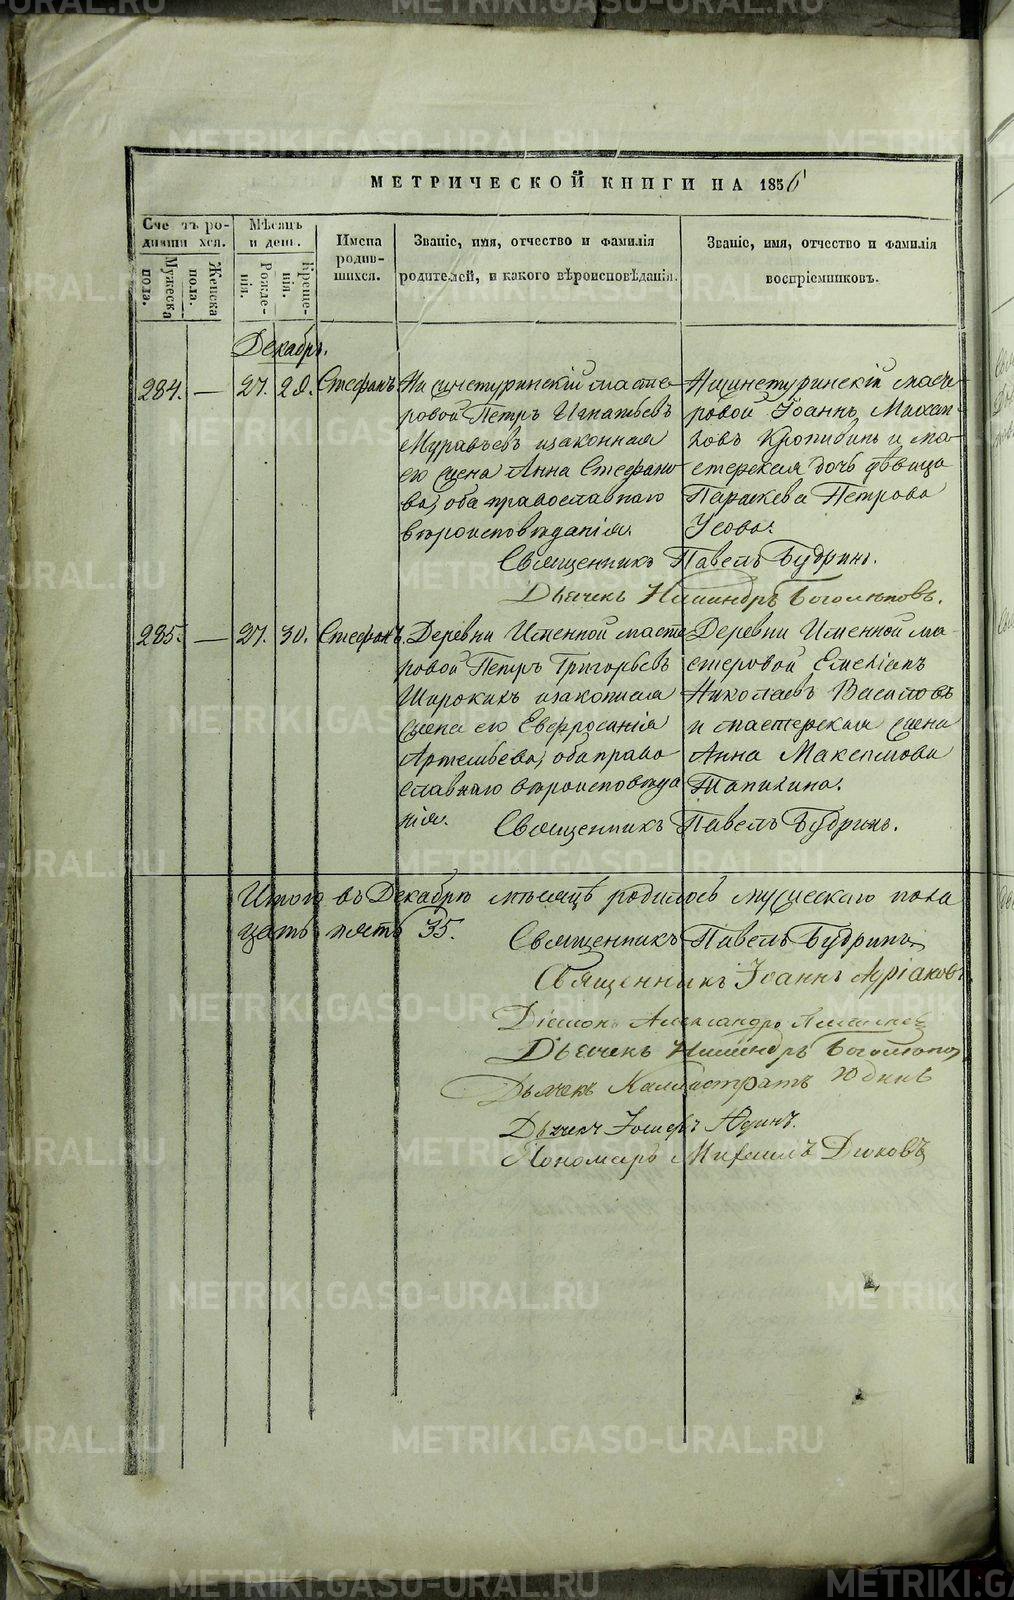 МЕТРИЧЕСКОЙ КНИГИ НА 1856
Сче тъ ро-
дивши хся.
Мужеска
пола.
Женска
пола.
Мѣсяцъ
и день.
Рожде-
нія.
Креще-
нія.
Имена
родив-
шихся.
Званіе, имя, отчество и фамилія
родителей, и какого вѣроисповѣданія.
Званіе, имя, отчество и фамилія
воспріемниковъ.
Декабрь.
284. — 27. 28. Стефанъ
Нижнетуринскій масте-
ровой Петръ Игнатьевъ
Муравьевъ изаконная
его жена Анна Стефано
ва, оба православнаго
вѣроисповѣданія.
Нижнетуринскій масте
ровой Іоаннъ Михаи-
ловъ Кропивинъ и ма-
стерская дочь дѣвица
Параскева Петрова
Усова.
Священникъ Павелъ Будринъ.
Дьячекъ Никандръ Боголѣповъ.
285. — 27. 30. Стефанъ.
Деревни Именной масте
ровой Петръ Григорьевъ
Широкихъ изаконная
жена его Евфросинія
Артемьева, оба право
славнаго вѣроисповѣда
нія.
Деревни Именной ма-
стеровой Емеліанъ
Николаевъ Васильевъ
и мастерская жена
Анна Максимова
Тапихина.
Священникъ Павелъ Будринъ.
Итого въ Декабрѣ мѣсяцѣ родилось мужескаго пола
цать пять 35.
Священникъ Павелъ Будринъ
Священникъ Іоаннъ
Діаконъ Александръ
Дьячекъ Никандръ Боголѣповъ
Дьячекъ Каллистратъ Юдинъ
Дьячекъ Іосифъ Юдинъ.
Пономарь Михаилъ Дюковъ
METRIKI.GASO-URAL.RU